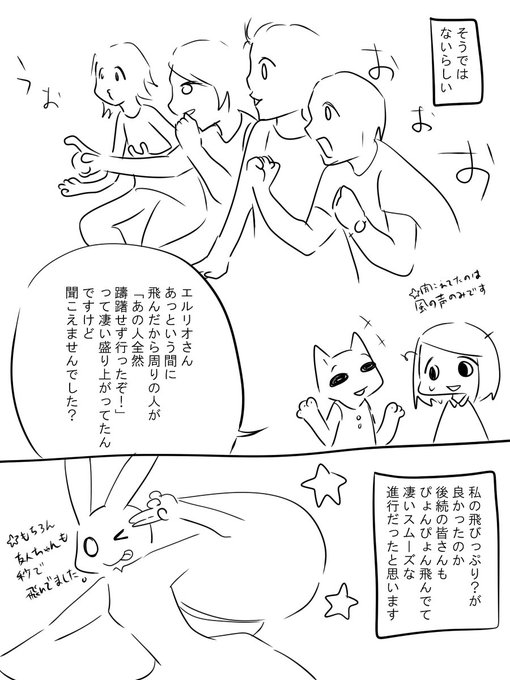 そうでは
ないらしい
うぉ
おぉ
おぉ
☆聞こえてたのは
風の声のみです
エルリオさん
あっという間に
飛んだから周りの人が
「あの人全然
躊躇せず行ったぞ！」
って凄い盛り上がってたん
ですけど
聞こえませんでした？
私の飛びっぷり？が
良かったのか
後続の皆さんも
ぴょんぴょん飛んでて
凄いスムーズな
進行だったと思います
☆もちろん
友人ちゃんも
秒で
飛んでました。